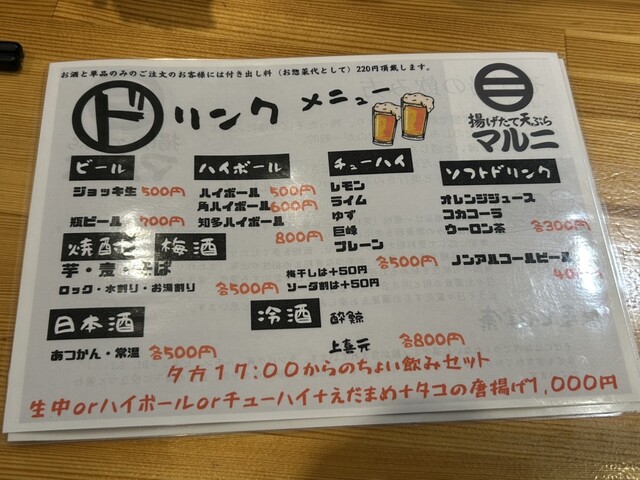 お酒と単品のみのご注文のお客様には付き出し料（お惣菜代として）220円頂戴します。
ドリンク メニュー
揚げたて天ぷら
マルニ
ビール
ジョッキ生 500円
瓶ビール 700円
ハイボール
ハイボール 500円
角ハイボール 600円
知多ハイボール
800円
チューハイ
レモン
ライム
ゆず
巨峰
プレーン
各500円
梅干しは+50円
ソーダ割は+50円
ソフトドリンク
オレンジジュース
コカコーラ
ウーロン茶 各300円
ノンアルコールビール
焼酎 梅酒
芋・麦・そば
ロック・水割り・お湯割り 各500円
日本酒
あつかん・常温 各500円
冷酒
酔鯨
上喜元 各800円
夕方17:00からのちょい飲みセット
生中orハイボールorチューハイ+えだまめ+タコの唐揚げ1,000円